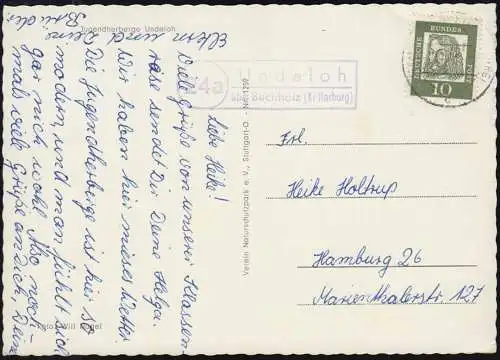 Jugendherberge Undeloh
Liebe Heike!
Viele Grüße von unserer Klassen-
reise sendet Dir Deine Helga.
Wir haben hier mieses Wetter.
Die Jugendherberge ist hier so
modern, und man fühlt sich
gar nicht wohl. Also noch-
mals viele Grüße an dich Deine
Eltern und Deine
Brüder
Foto: Will Vogel
Verein Naturschutzpark e. V., Stuttgart-O - Nr. 1259
24a
Undeloh
über Buchholz (Kr Harburg)
DEUTSCHE BUNDESPOST
10
Frl.
Heike Holtrup
Hamburg 26
Marienthalerstr. 127